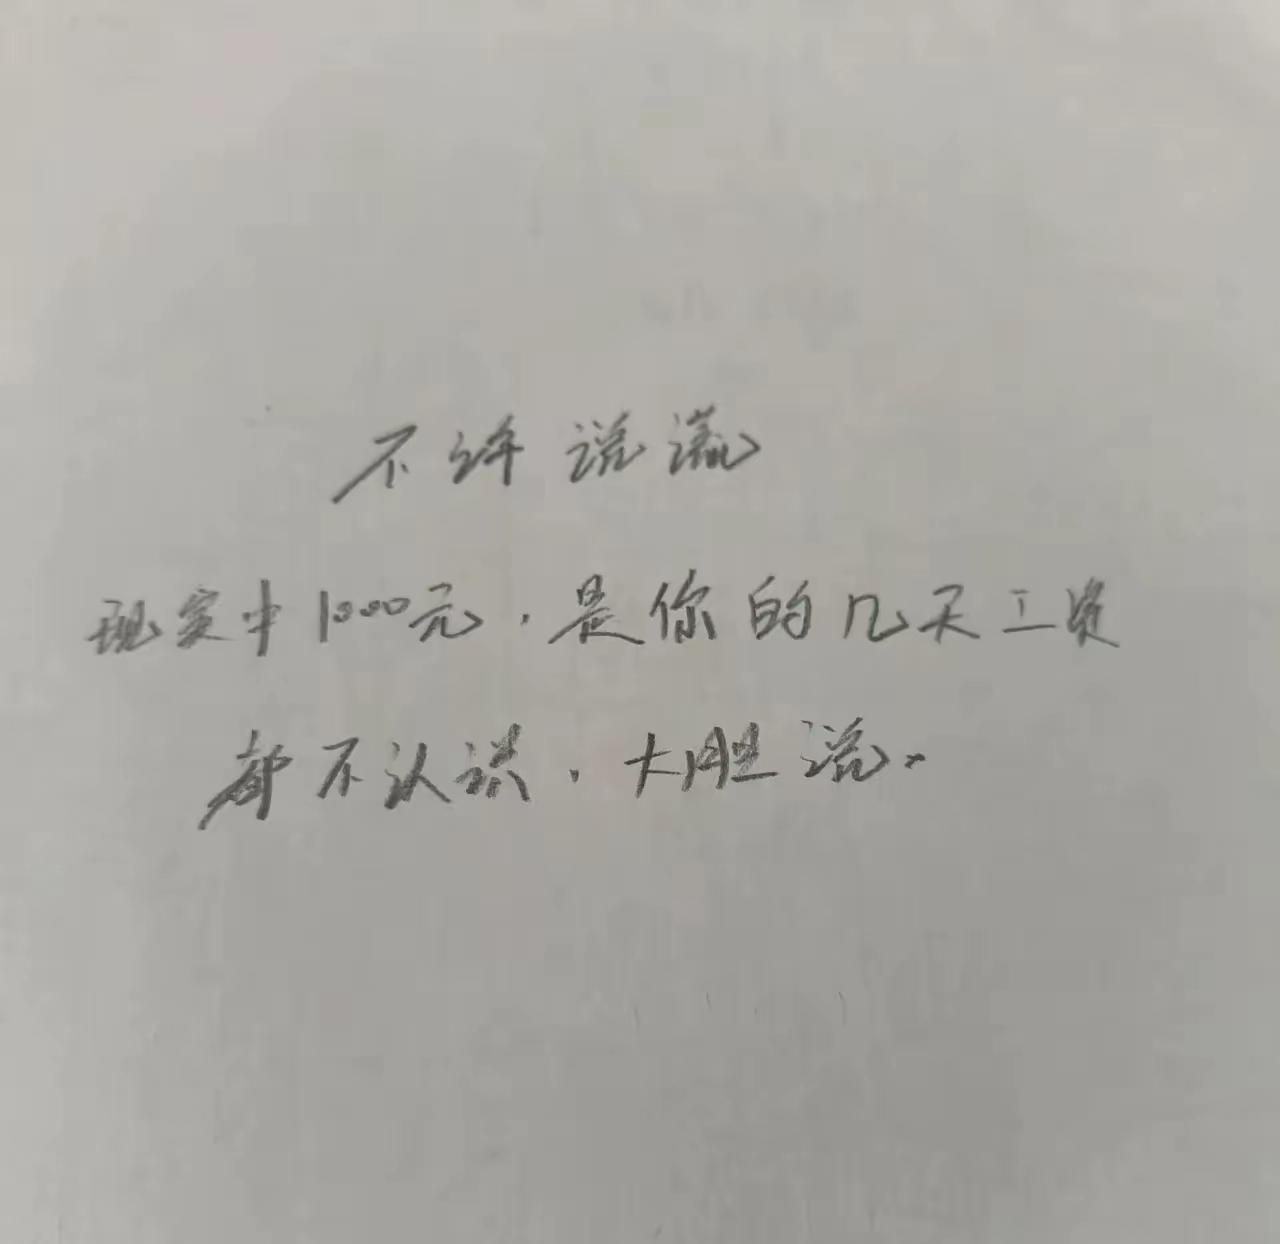 不许说谎
现实中1000元，是你的几天工资
都不认识，大胆说。